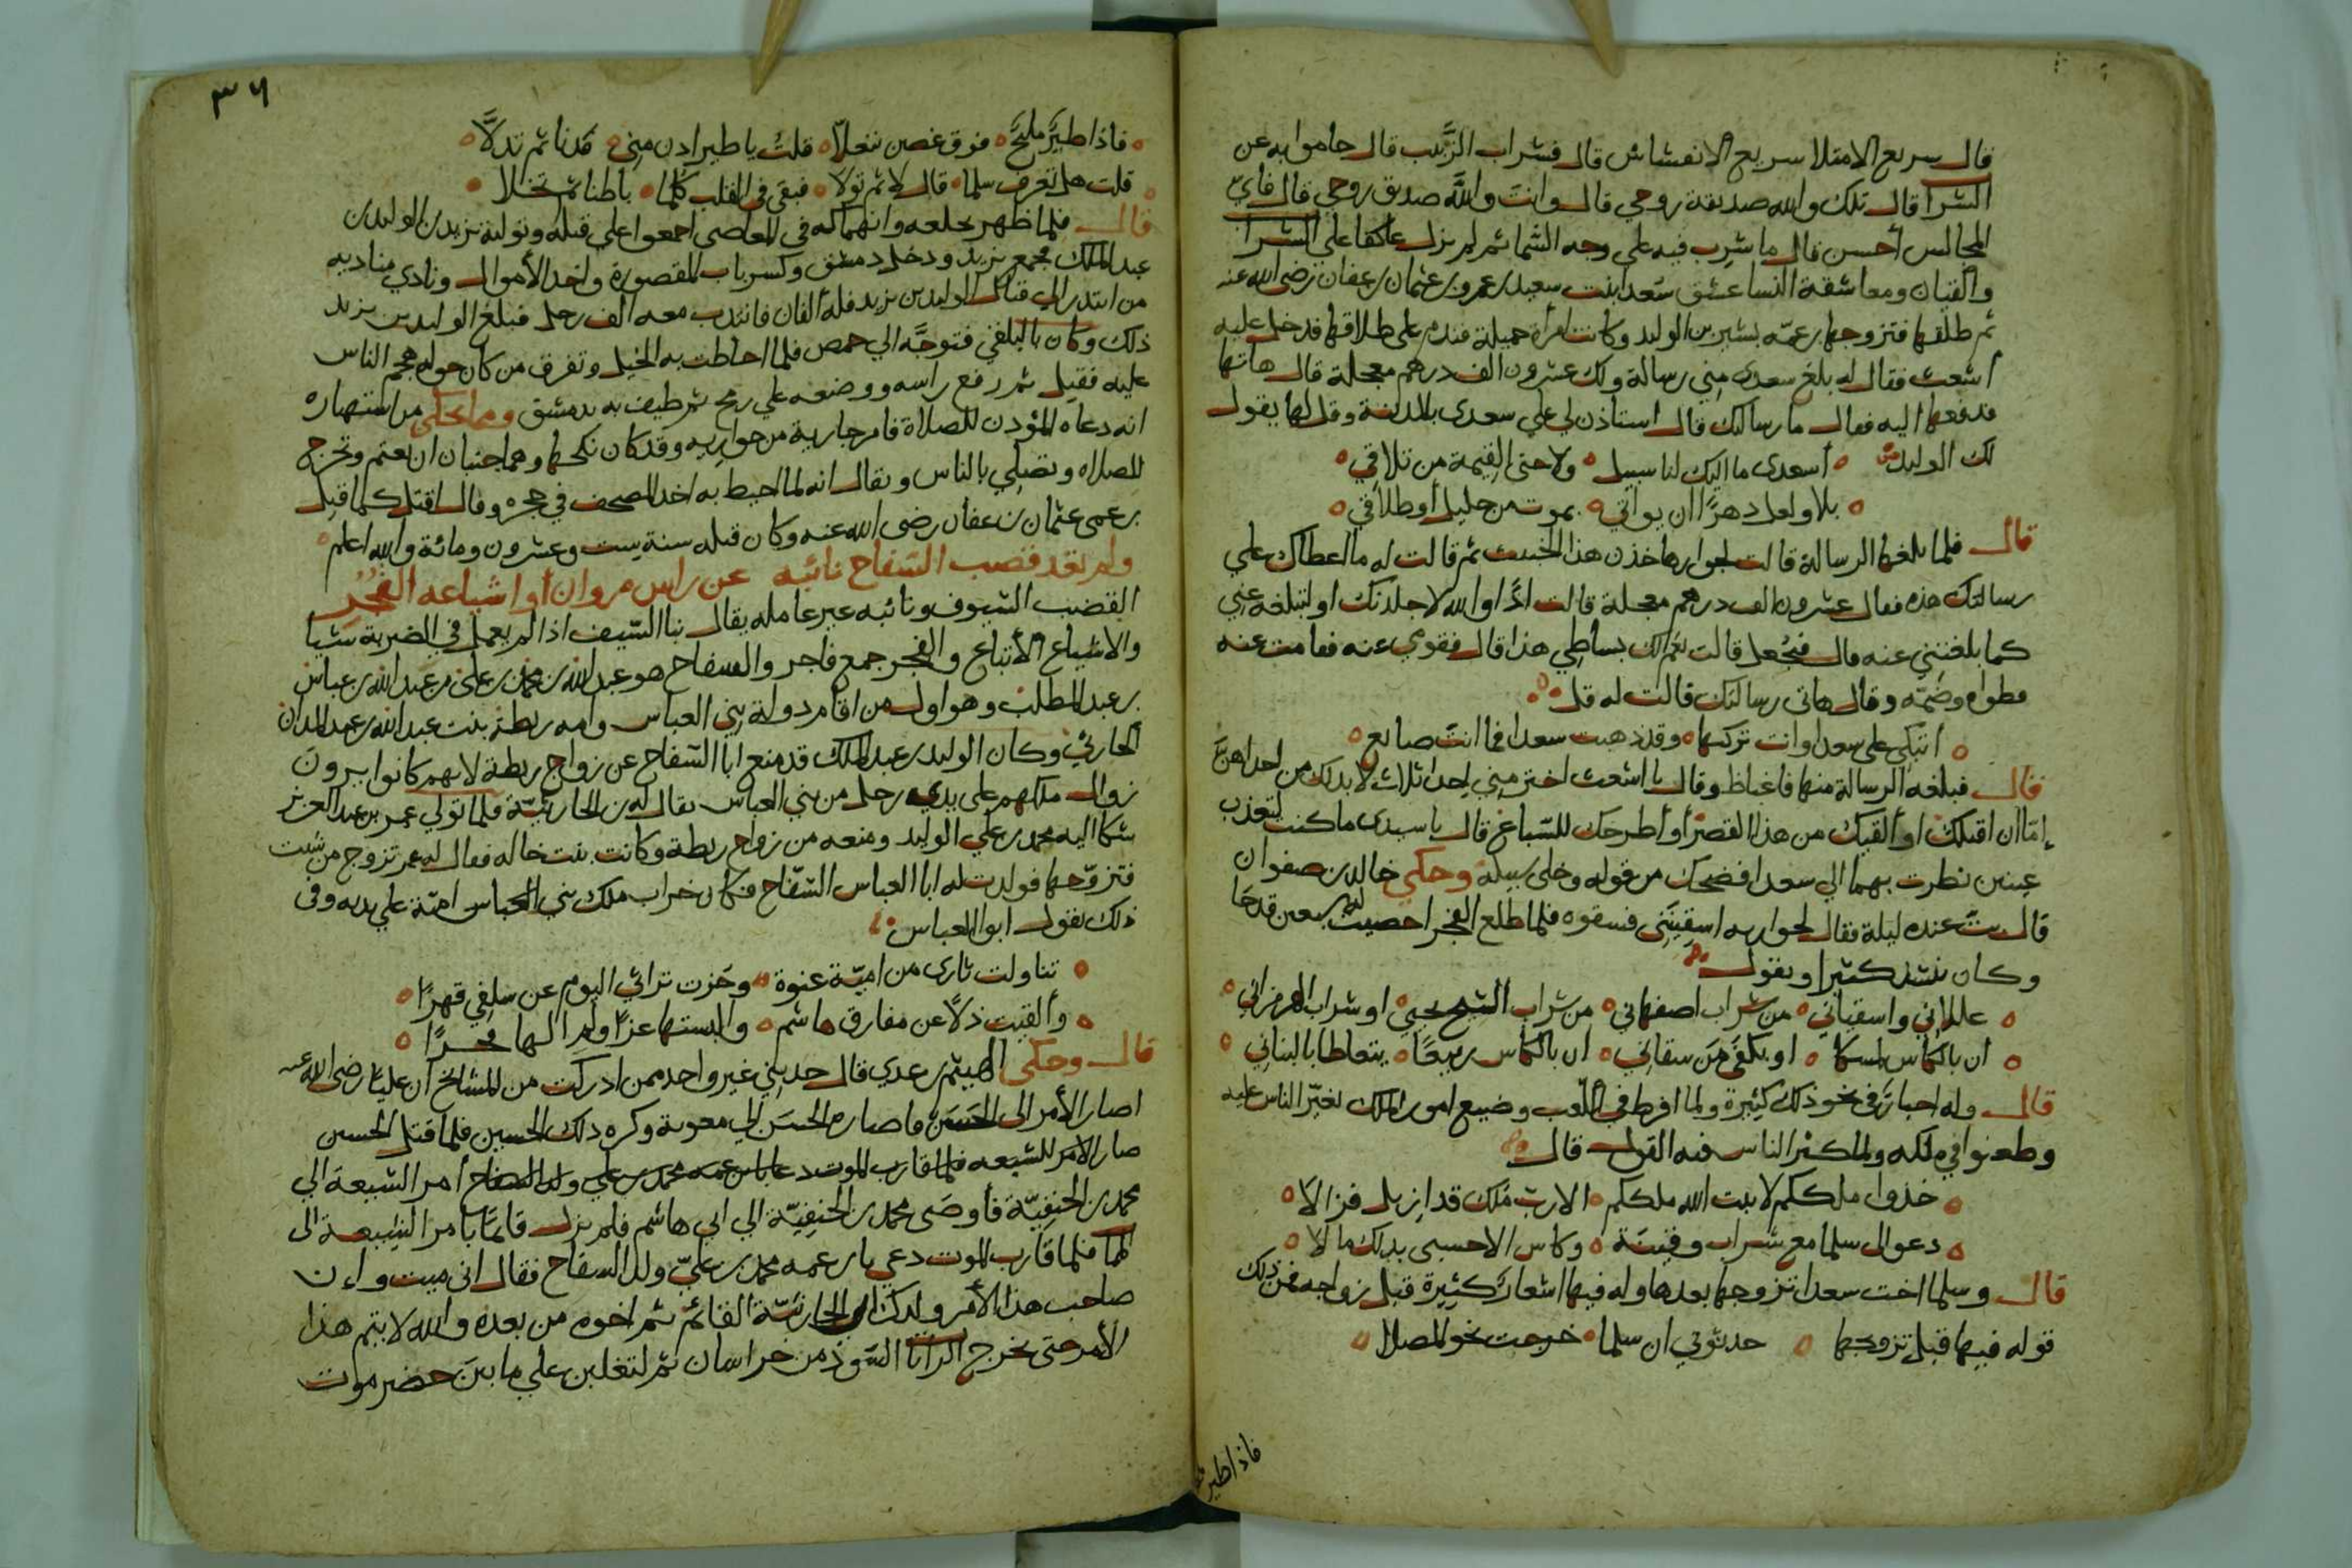 قال سريع الامتلا سريع الانفشاش قال فشراب الزَّبيب قال حاموا به عن
الشرا قال تلك والله صديقة روحي قال وانتَ واللَّه صديق روحي قال فايّ
المجالس أحسن قال ما شرب فيه علي وجه الشما ثم لم يزل عاكفا علي الشرا
والقيان ومعاشقة النسا عشق سعدا بنت سعيد بن عمرو بن عثمان بن عفان رضي الله عنه
ثم طلقها فتزوجها بن عمّه بشير بن الوليد وكانت امرأة جميلة فندم على طلاقها فدخل عليه
أشعث فقال له بلغ سعدى مني رسالة ولك عشرون الف درهم معجلة قال هاتها
فدفعها اليه فقال ما رسالتك قال استاذن لي علي سعدى بالمدينة وقل لها يقول
لك الوليد أسعدى ما اليك لنا سبيل ولا حتى القيمة من تلاقي
بلا ولعل دهرًا ان يواتي بموت من حليل أو طلاقي
قال فلما بلغها الرسالة قالت لجوارها خذن هذا الخبيث ثم قالت له ما اعطاك علي
رسالتك هذه فقال عشرون الف درهم معجلة قالت اذًا والله لاجلدنك او لتبلغه عني
كما بلغتني عنه قال فجُعل قالت نعم لك بساطي هذا قال فقومي عنه فقامت عنه
فطواه وضمّه وقال هاتي رسالتك قالت له قل
أتبكي على سعدا وانت تركتها وقد ذهبت سعدا فما انتَ صانع
فقال فبلغه الرسالة منها فاغتاظ وقال يا اشعث اختر مني احدا ثلاث لا بد لك من احداهنّ
إمّا ان اقتلك او ألقيك من هذا القصر أو أطرحك للسّباع قال يا سيدى ما كنت لتعذب
عينين نظرت بهما الي سعدا فضحك من قوله وخلى سبيله وحكي خالد بن صفوان
قال بتّ عنده ليلة فقال لجواريه اسقيننى فسقوه فلما طلع الفجر احصيت له سبعين قدحًا
وكان ينشد كثيرا ويقول
عللاني واسقياني من شراب اصفهاني من شراب الشيخ يحيي او شراب الهرمزاني
ان بالكاس لمسكا او بكفَي مَن سقاني ان بالكاس ربيعًا يتعاطا بالبناني
قال وله اخبارٌ في نحو ذلك كثيرة ولما افرط في اللّعب وضيع امور الملك تغيّر الناس عليه
وطعنوا في ملكه ولما كثر الناس فيه القول قال
خذوا ملككم لا ثبت الله ملككم الا رب مُلك قد ازيل فزالا
دعوا لى سلما مع شراب وقينَة وكاس الا حسبى بذلك مالا
قال وسلما اخت سعدا تزوجها بعدها وله فيها اشعارٌ كثيرة قبل زواجه فمن ذلك
قوله فيها قبل تزوجها حدثوني ان سلما خرجت نحو المصلا
فاذا طير
٣٦
فاذا طيرٌ مليحٌ فوق غصن يتفلّا قلتُ يا طير ادن مني فدنا ثم تدلَّا
قلت هل تعرف سلما قال لا ثم تولا فبقى في القلب كلما باطنا ثم تخلا
قال فلما ظهر تخلعه وانهماكه في المعاصي اجمعوا علي قتله وتولية يزيد بن الوليد بن
عبد الملك فجمع يزيد ودخل دمشق وكسر باب المقصورة واخذ الأموال ونادي مناديه
من ابتدر الي قتال الوليد بن يزيد فله ألفان فانتدب معه الف رجل فبلغ الوليد بن يزيد
ذلك وكان بالبلقي فتوجَّه الي حمص فلما احاطت به الخيل وتفرق من كان حوله هجم الناس
عليه فقيل ثم رفع راسه ووضعه علي رمح ثم طيف به بدمشق ومما يحكي من استهتاره
انه دعاه المؤدن للصلاة فامر جارية من جواريه وقد كان نكحها وهما جنبان ان تعتم وتخرج
للصلاه وتصلي بالناس ويقال انه لما احيط به اخذ المصحف في حجره وقال اقتل كما قتل
بن عمي عثمان بن عفان رضى الله عنه وكان قتله سنة ست وعشرون ومائة والله اعلم
ولم تعد قضب السّفاح نائبه عن راس مروان أو اشياعه الفُجُر
القضب السّيوف ونائبه غير عامله يقال نبا السّيف اذا لم يعمل في الضربة شيًا
والاشياع الأتباع والفجر جمع فاجر والسفاح هو عبد الله بن محمد بن علي بن عبد الله بن عباس
بن عبد المطلب وهو اول من اقام دولة بني العباس وامه ريطة بنت عبد الله بن عبد المدان
الحارثي وكان الوليد بن عبد الملك قد منع ابا السّفاح عن زواج ريطة لانهم كانوا يرون
زوال ملكهم على يدي رجل من بني العباس يقال له بن الحارثيّة فلما تولي عمر بن عبد العزيز
شكا اليه محمد بن علي الوليد ومنعه من زواج ريطة وكانت بنت خاله فقال له عمر تزوج من شئت
فتزوّجها فولدت له ابا العباس السّفّاح فكان خراب ملك بني العباس اميّة علي يديه وفى
ذلك يقول ابوا العباس
تناولت ثارى من اميّة عنوة وحَزت تراثي اليوم عن سلفي قهرًا
وألقيت ذلًا عن مفارق هاشم والبستها عزًا ولم الها فخرًا
قال وحكى الهيثم بن عدي قال حدثني غير واحد ممن ادركت من المشائخ ان عليًا رضى الله عنه
اصار الأمر الى الحسن فاصاره الحسن الي معوية وكره ذلك الحسين فلما قتل الحسين
صار الامر للشيعه فلما قارب الموت دعا بابن عمه محمد بن علي ولد السفاح أمر الشيعة الي
محمد بن الحنفيّة فأوصَى محمد بن الحنفيّة الي ابي هاشم فلم يزل قائمًا بامر الشيعة الى
لما فلما قارب الموت دعي بابن عمه محمد بن عليّ ولد السفاح فقال انى ميت وان
صاحب هذا الأمر ولدك ابن الحارثيّة القائم ثم اخوه من بعده والله لا يتم هذا
الأمر حتى تخرج الرايا السّود من خراسان ثم لتغلبن علي ما بين حضر موت